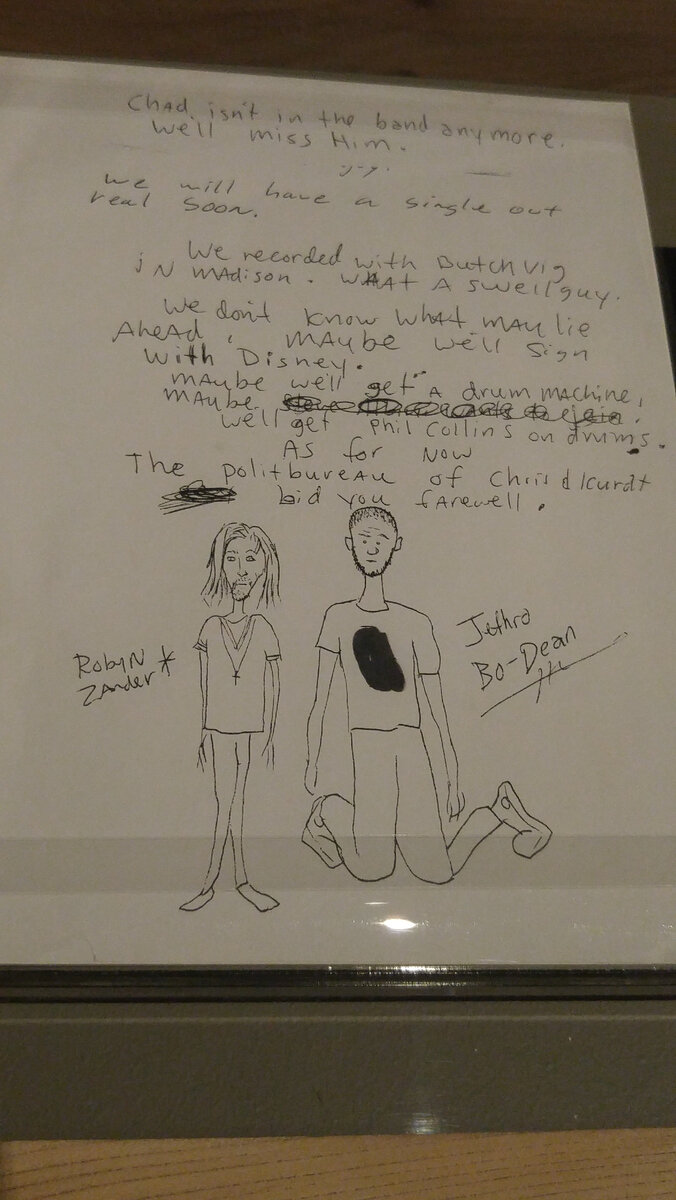 Chad isn't in the band anymore.
We'll miss Him.
We will have a single out
real soon.
We recorded with Butch Vig
iN MAdison. WHAT A swell guy.
We don't know What MAY lie
AHeAd, MAYbe We'll Sign
With Disney.
MAYbe we'll get A drum MAchine,
MAYbe
We'll get Phil Collins on drums.
As for NOW
The politbureau of Chris d Kurdt
bid you fArewell.
RobyN
ZANder *
Jethro
Bo-Dean